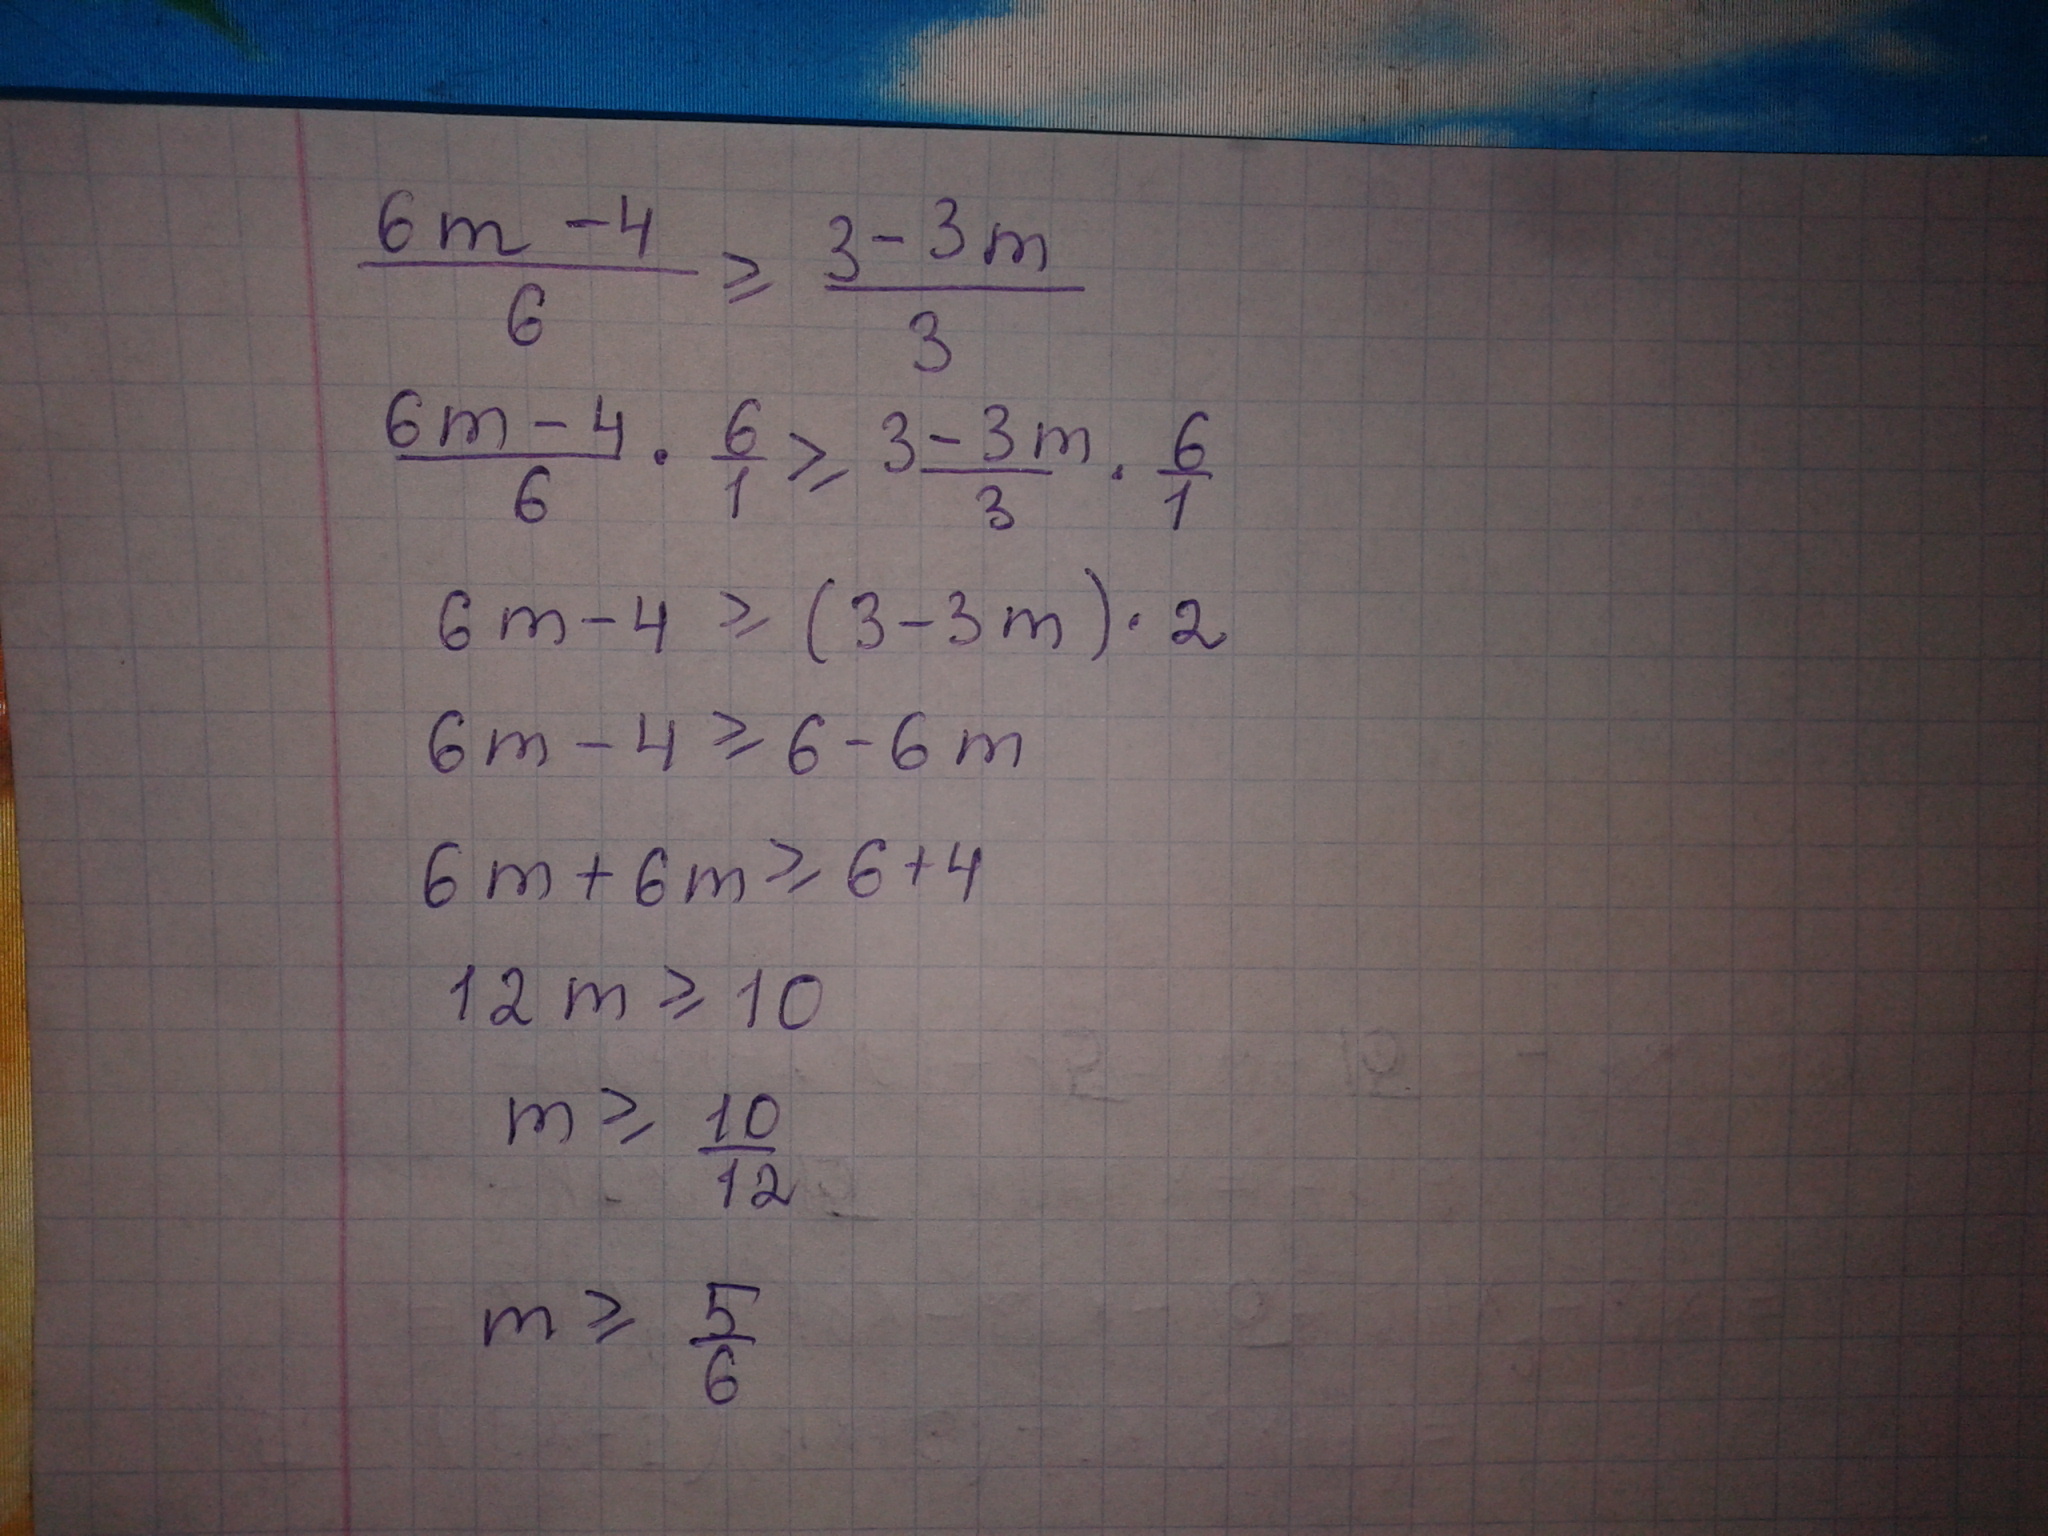 (6m - 4)/6 ⩾ (3 - 3m)/3
(6m - 4)/6 · 6/1 ⩾ (3 - 3m)/3 · 6/1
6m - 4 ⩾ (3 - 3m) · 2
6m - 4 ⩾ 6 - 6m
6m + 6m ⩾ 6 + 4
12m ⩾ 10
m ⩾ 10/12
m ⩾ 5/6